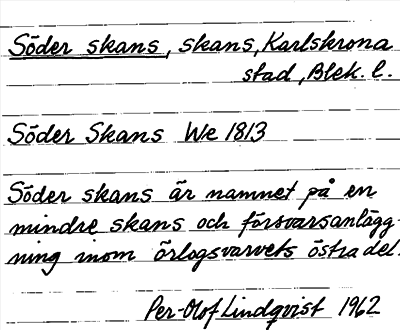 Söder skans, skans, Karlskrona
stad, Blek. l.
Söder Skans We 1813
Söder skans är namnet på en
mindre skans och försvarsanlägg-
ning inom örlogsvarvets östra del.
Per-Olof Lindqvist 1962